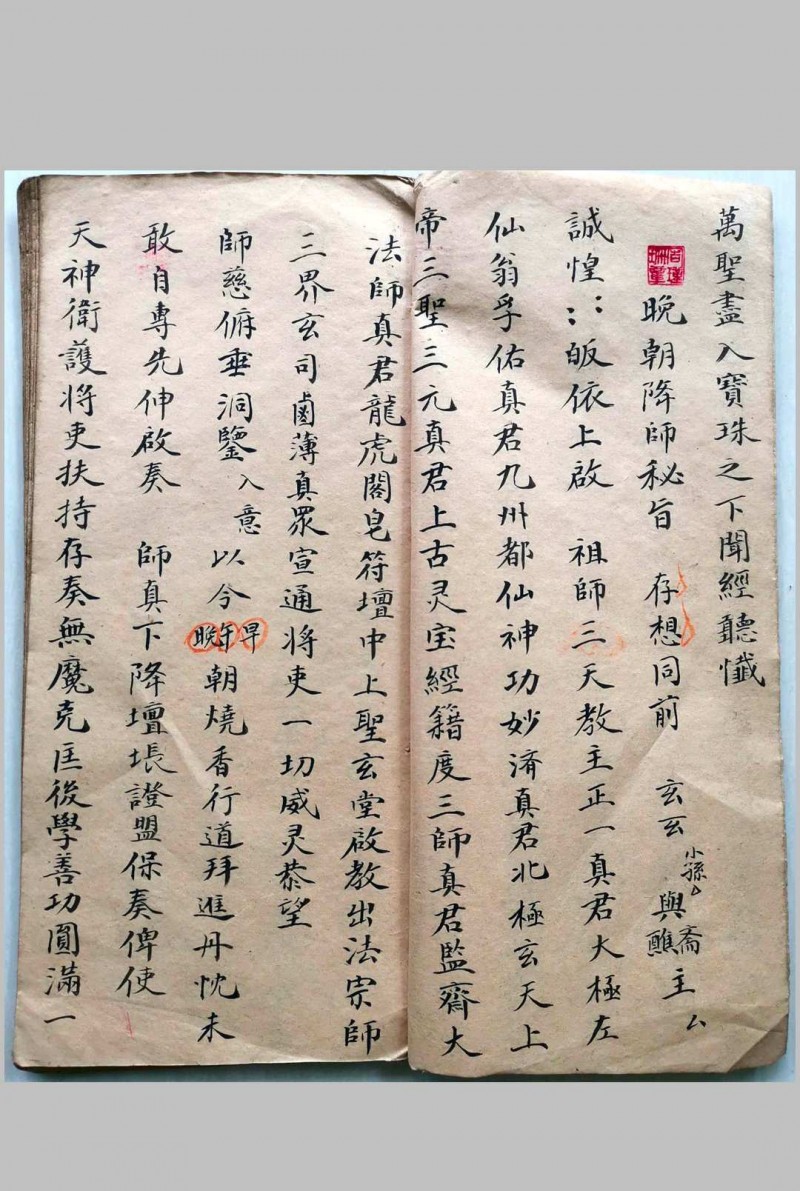 萬聖盡入寶珠之下聞經聽懺
晚朝降師秘旨 存想同前 玄玄 小孫厶 與齋醮主厶
誠惶⺀⺀皈依上啟 祖師三天教主正一真君大極左
仙翁孚佑真君九州都仙神功妙濟真君北極玄天上
帝三聖三元真君上古灵宝經籍度三師真君監齋大
法師真君龍虎閣皂符壇中上聖玄堂啟教出法宗師
三界玄司鹵薄真眾宣通將吏一切威灵恭望
師慈俯垂洞鑒 入意 以今早午晚朝燒香行道拜進丹忱未
敢自專先伸啟奏 師真下降壇場證盟保奏俾使
天神衛護將吏扶持存奏無魔克匡後學善功圓滿一